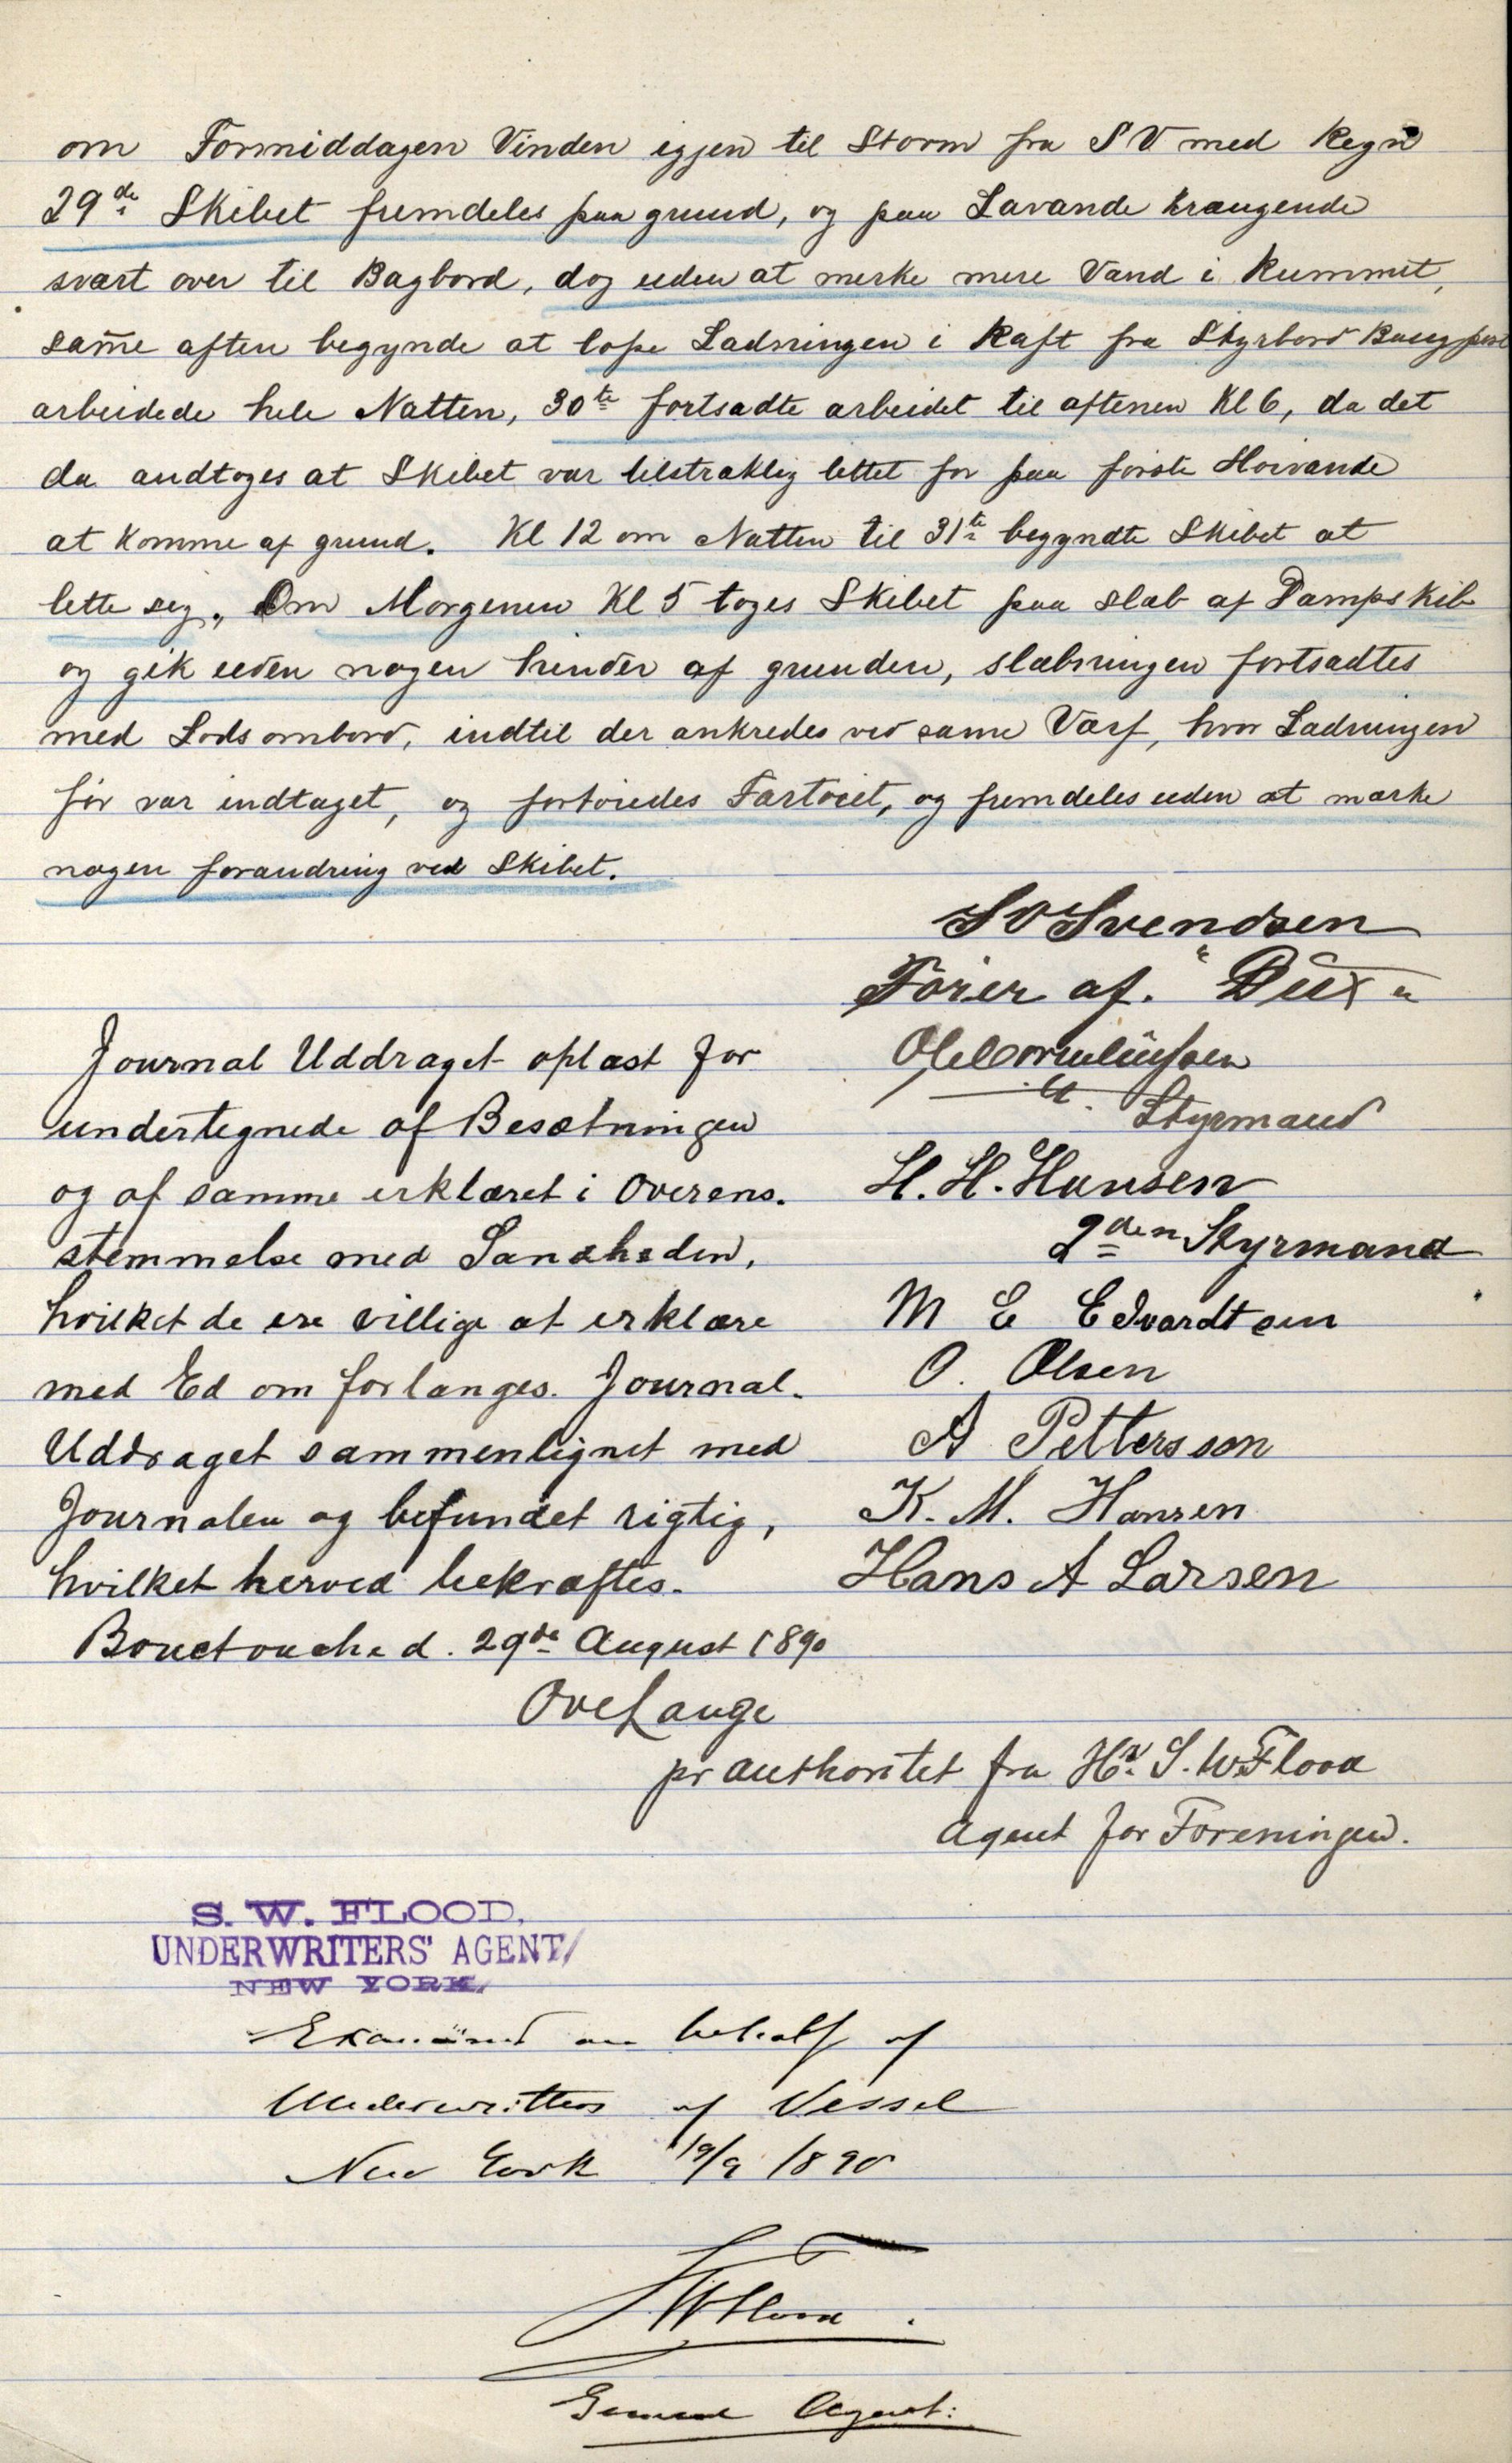 om Formiddagen Vinden igjen til Storm fra S V med Regn
29de Skibet fremdeles paa grund, og paa Lavande krængende
svært over til Bagbord, dog uden at merke mere Vand i Rummet,
samme aften begynde at lope Ladningen i Raft fra Styrbord
arbeidede hele Natten, 30te fortsadte arbeidet til aftenen Kl 6, da det
da andtoges at Skibet var tilstraklig lettet for paa første Hoivande
at komme af grund. Kl 12 om Natten til 31te begyndte Skibet at
lette sig. Om Morgenen Kl 5 toges Skibet paa slæb af Dampskib
og gik uden nogen hinder af grunden, slæbningen fortsadtes
med Lods ombord, indtil der ankredes ved same Værf, hvor Ladningen
før var indtaget, og fortøiedes Fartøiet, og fremdeles uden at mærke
nogen forandring ved Skibet.
S O Svendsen
Fører af. "Dux"
Ole Corneliussen
Styrmand
H. H. Hansen
2den Styrmand
M E Edvardtsen
O. Olsen
A Pettersson
K. M. Hansen
Hans A Larsen
Journal Uddraget oplæst for
undertegnede af Besætningen
og af samme erklæret i Overens-
stemmelse med Sandheden,
hvilket de ere villige at erklære
med Ed om forlanges. Journal-
Uddraget sammenlignet med
Journalen og befundet rigtig,
hvilket herved bekræftes.
Bouctouche d. 29de August 1890
Ove Lange
pr authoritet fra Hr. S. W. Flood
Agent for Foreningen.
S. W. FLOOD,
UNDERWRITERS' AGENT,
NEW YORK.
Examined on behalf of
Underwriters of Vessel
New York 19/9 1890
S W Flood.
General Agent: